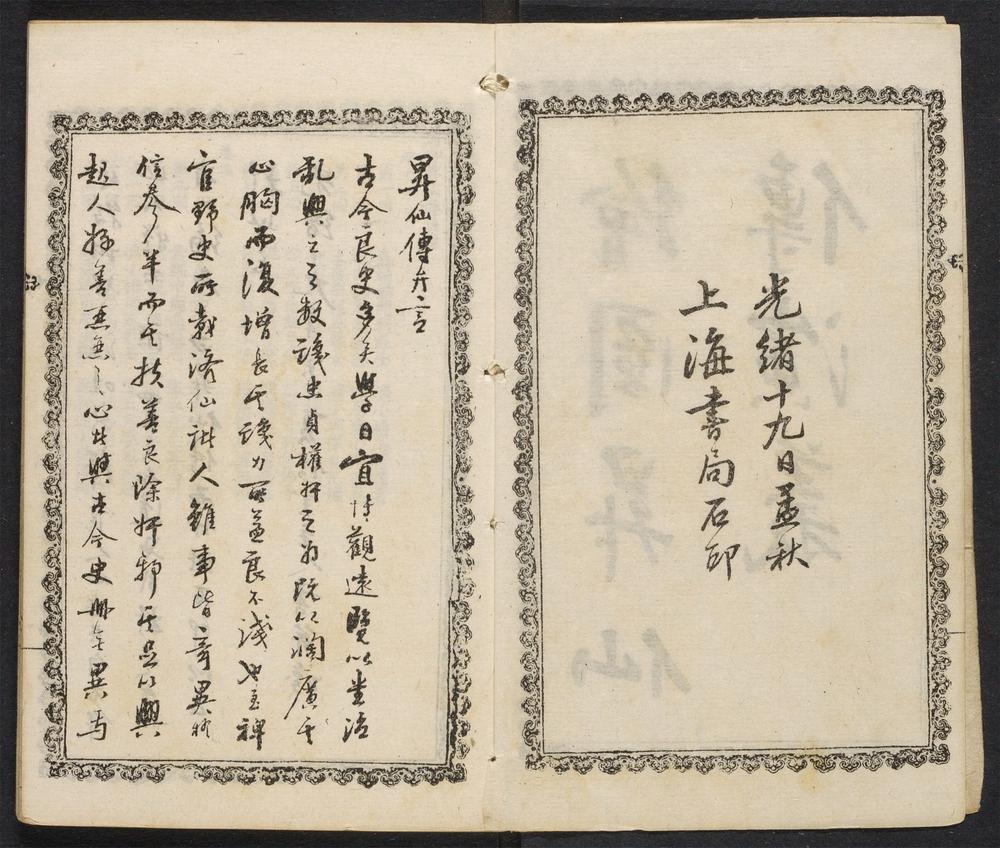 光緒十九日孟秋
上海書局石印
昇仙傳弁言
古今良史多矣學日宜博觀遠覽以治
亂興亡之数識忠貞權奸之為既以濶廣其
心胸而復增長其識力所益良不淺也至裨
官野史所載濟仙諸人雖事皆奇異
信參半而其扶善良除奸邪其足以興
起人好善惡惡之心此與古今史冊無異焉